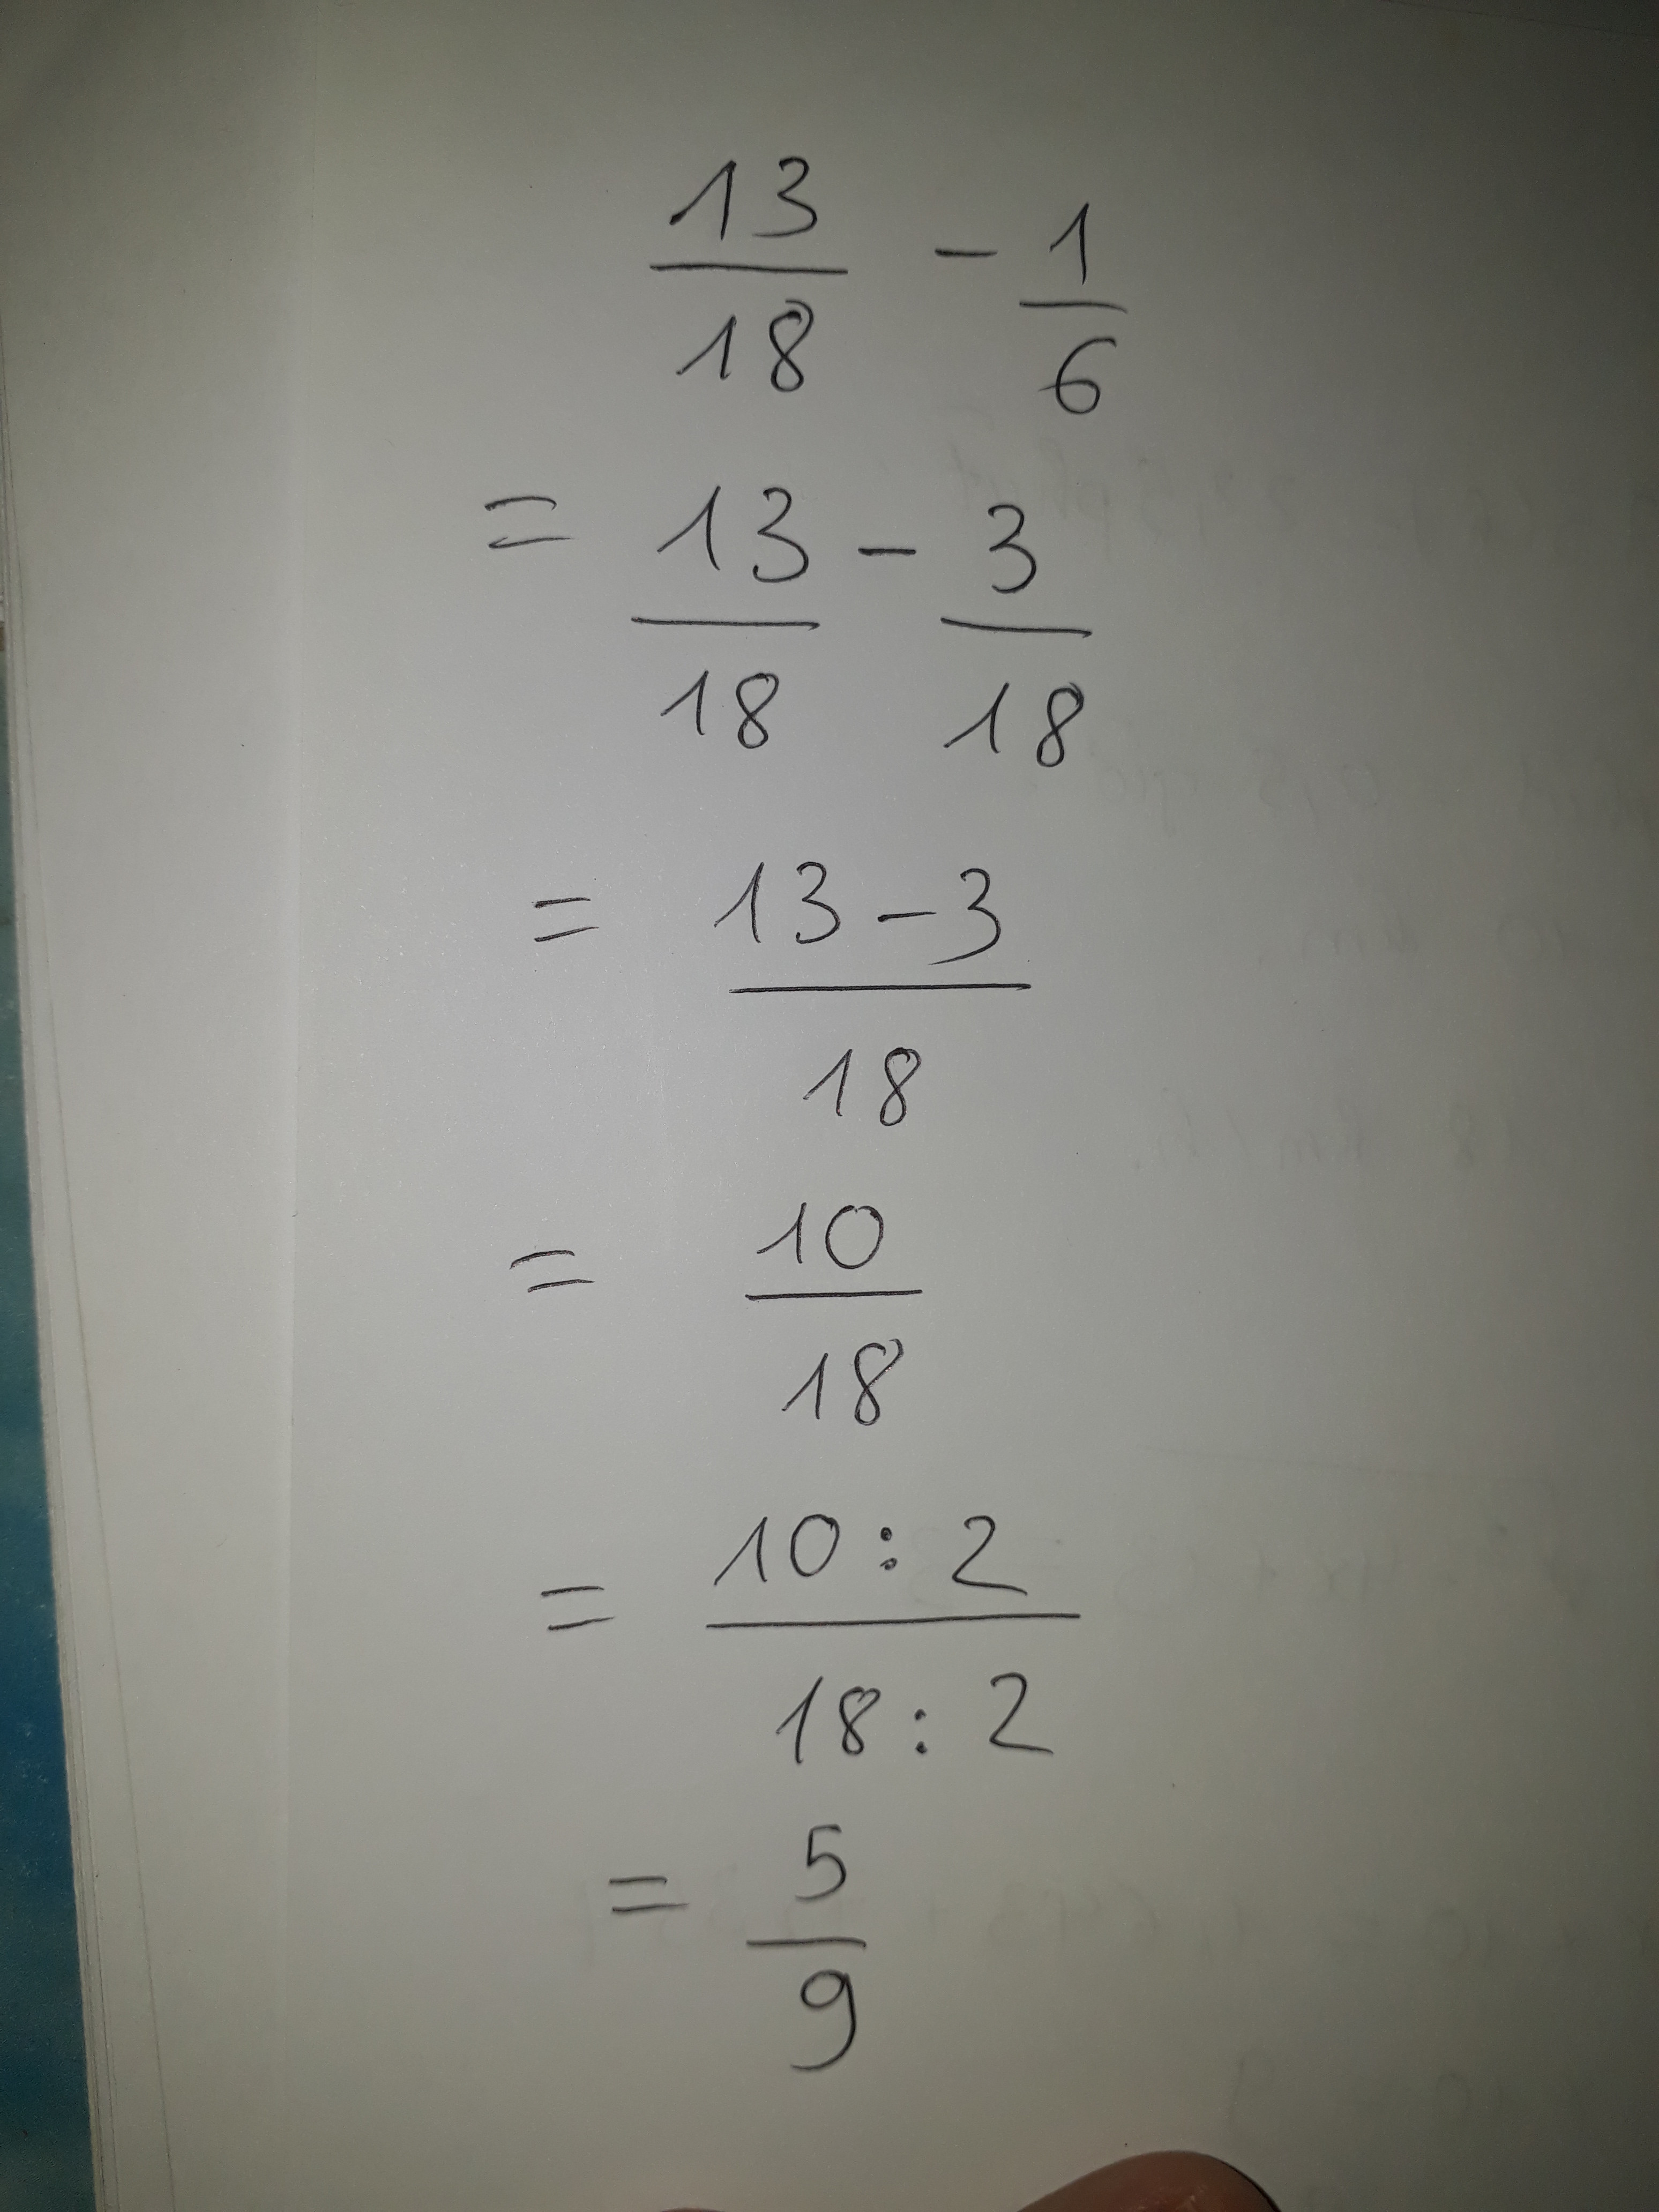 13/18 - 1/6
= 13/18 - 3/18
= 13-3/18
= 10/18
= 10:2/18:2
= 5/9